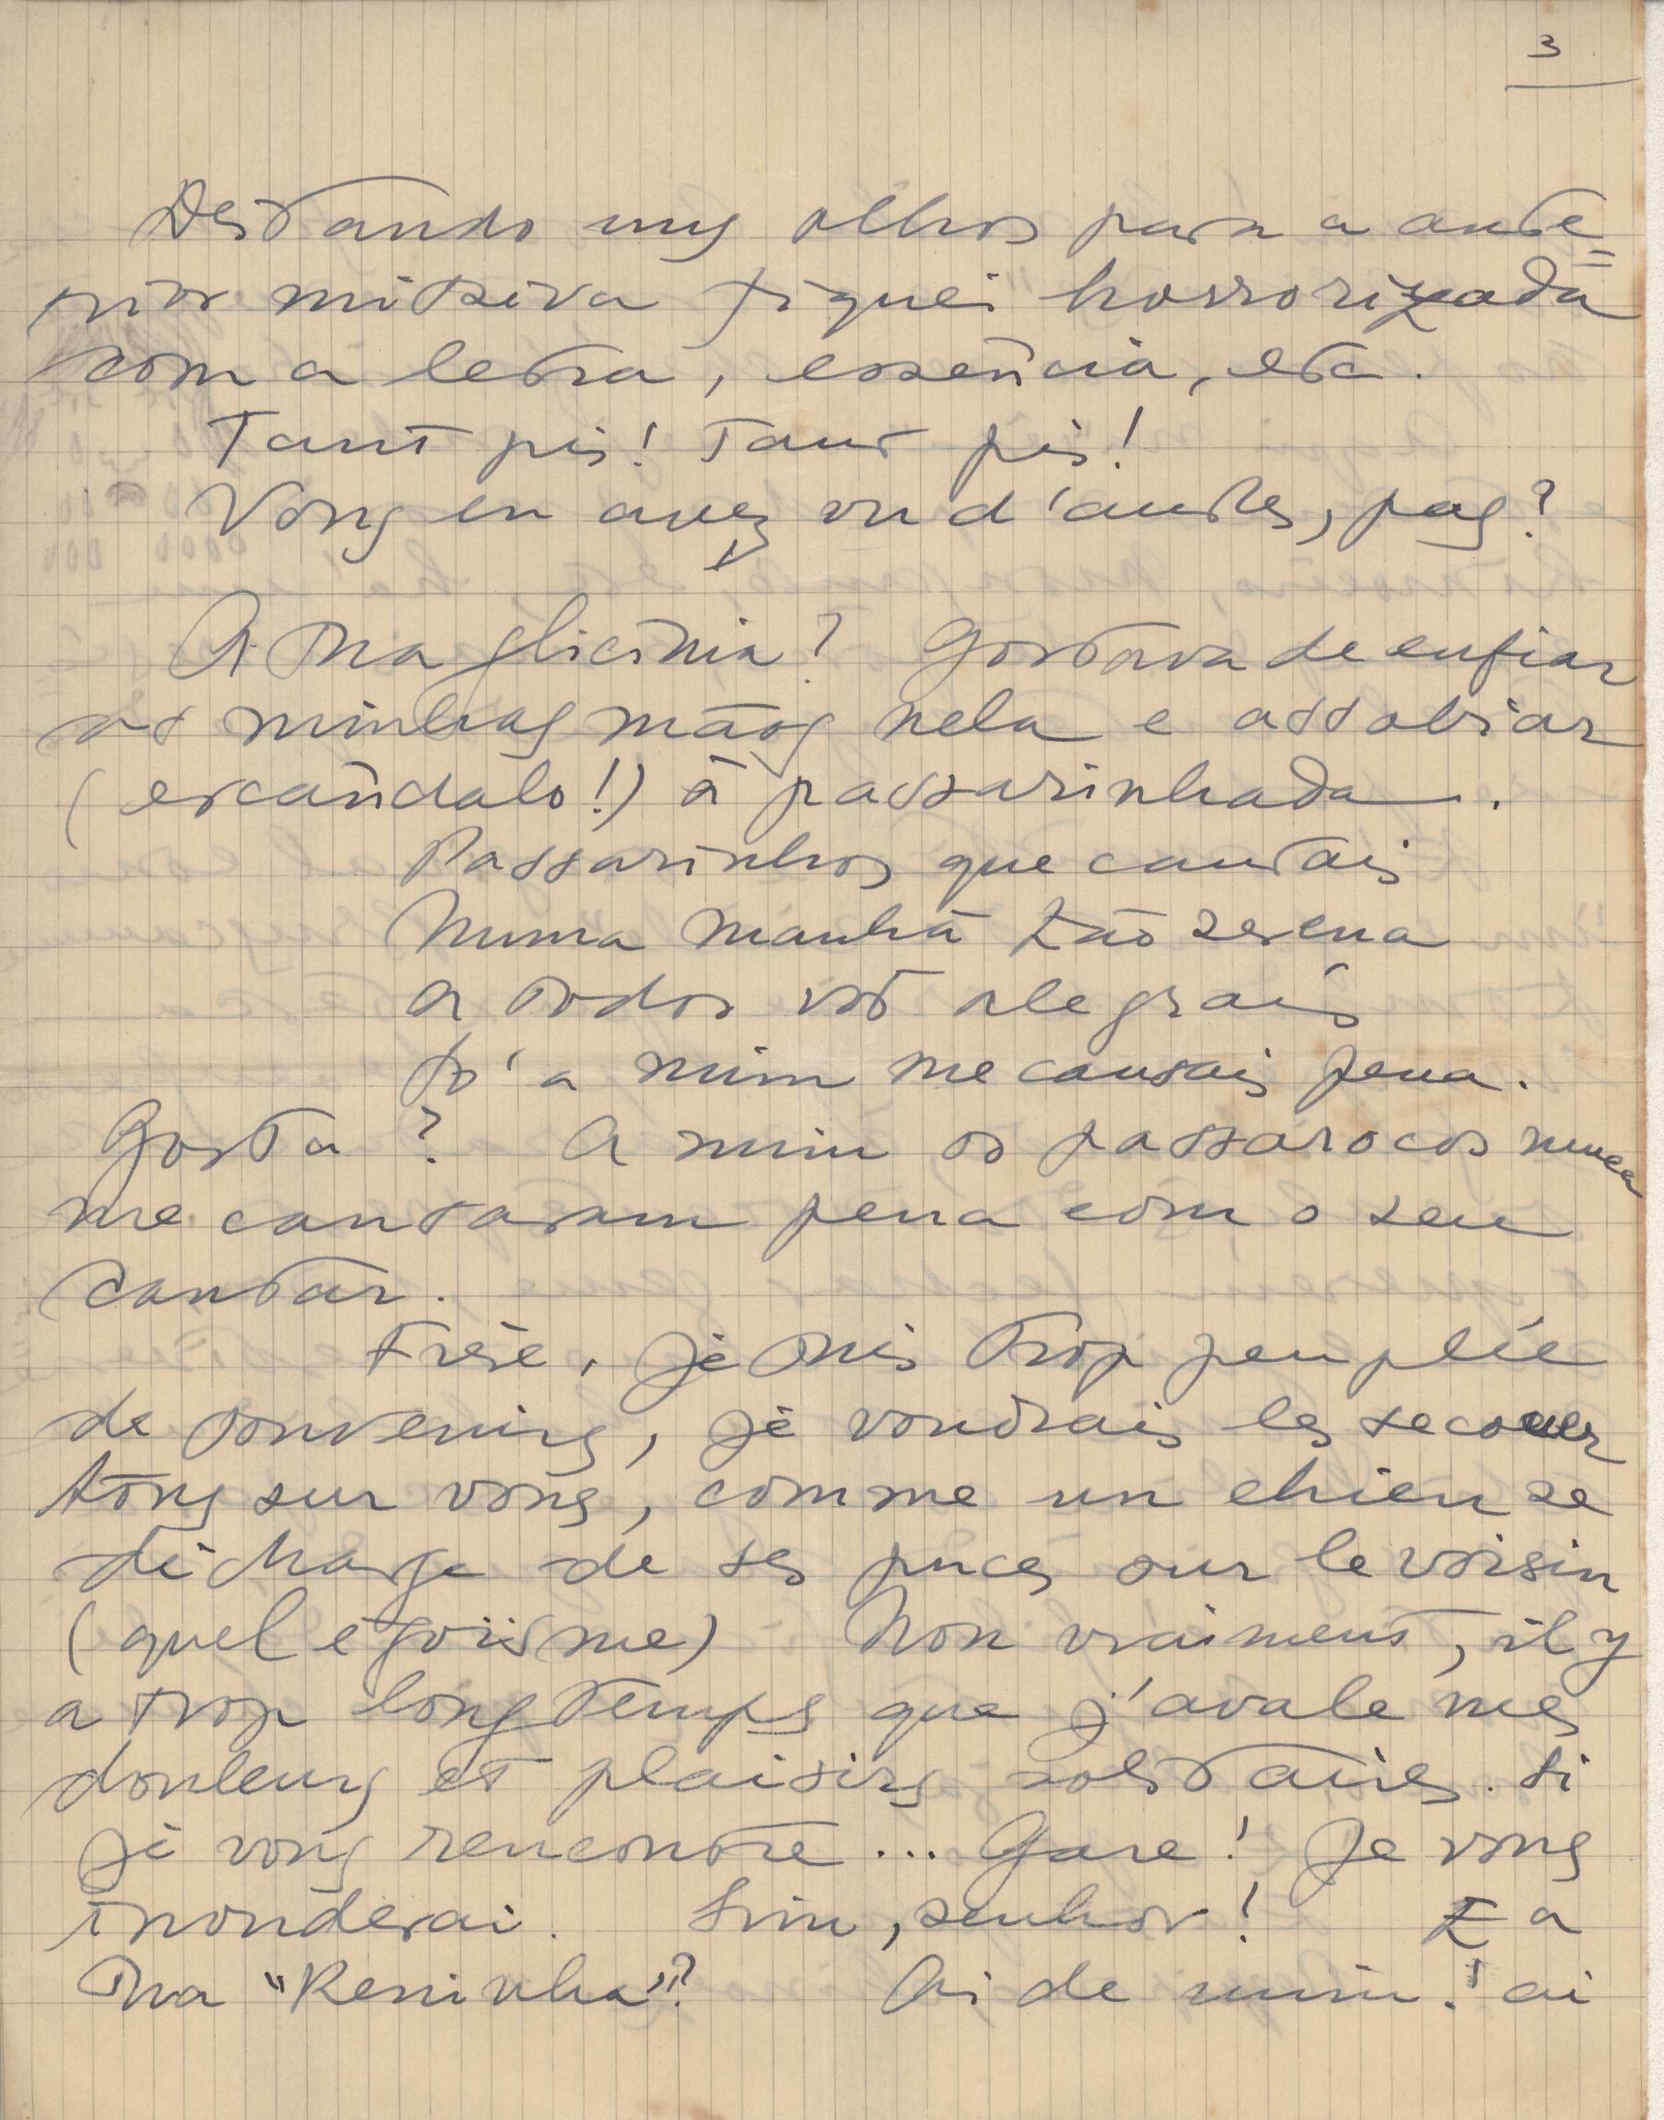 3
Deitando uns olhos para a ante=
rior missiva fiquei horrorizada
com a letra, essência, etc.
Tant pis! Tant pis!
Vous en avez vu d'autres, pas?
A sua glicínia? Gostava de enfiar
as minhas mãos nela e assobiar
(escândalo!) à passarinhada.
Passarinhos que cantais
Numa manhã tão serena
A todos vós alegrais
Só a mim me causais pena.
Gosta? A mim os passarocos nunca
me causaram pena com o seu
cantar.
Frère, je suis trop peuplée
de souvenirs, je voudrais les secouer
tous sur vous, comme un chien se
décharge de ses puces sur le voisin
(quel égoïsme) Non vraiment, il y
a trop longtemps que j'avale mes
douleurs et plaisirs solitaires. Si
je vous rencontre... Gare! Je vous
inonderai. Sim, senhor! E a
sua "Reninha"? Ai de mim! ai